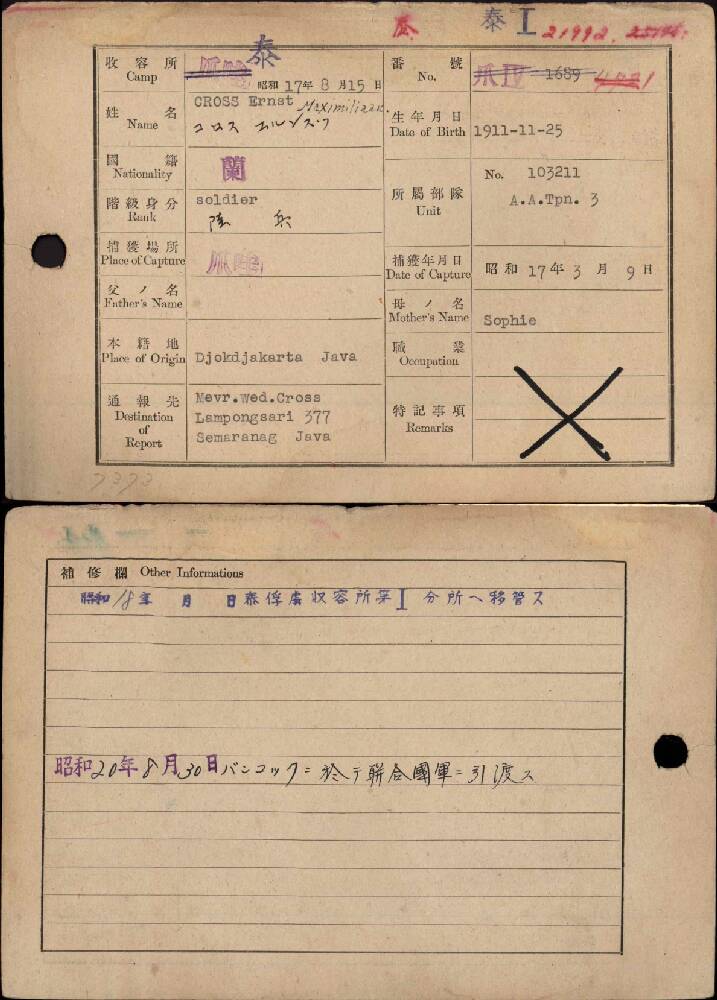 泰 I 21992.
收容所 Camp 泰 昭和17年8月15日
番號 No. 爪IV 1689 4721
姓名 Name CROSS Ernst Maximiliaan.
コロス エルンスク
生年月日 Date of Birth 1911-11-25
國籍 Nationality 蘭
所屬部隊 Unit No. 103211
A.A.Tpn. 3
階級身分 Rank soldier
陸 兵
捕獲場所 Place of Capture 爪哇
捕獲年月日 Date of Capture 昭和17年3月9日
父ノ名 Father's Name
母ノ名 Mother's Name Sophie
本籍地 Place of Origin Djokdjakarta Java
職業 Occupation
通報先 Destination of Report Mevr.Wed.Cross
Lampongsari 377
Semaranag Java
特記事項 Remarks
7373
補修欄 Other Informations
昭和18年 月 日泰俘虜収容所第I分所ヘ移管ス
昭和20年8月30日バンコックニ於テ聯合國軍ニ引渡ス